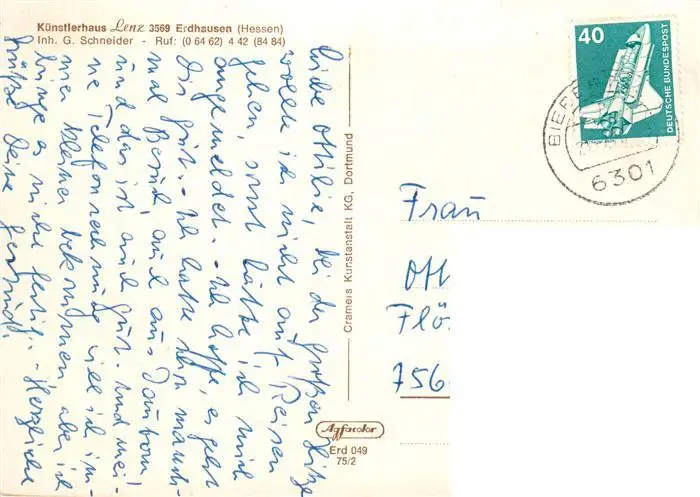 Künstlerhaus Lenz 3569 Erdhausen (Hessen)
Inh. G. Schneider - Ruf: (0 64 62) 4 42 (84 84)
liebe Ottilie, bei der großen Hitze
wollte ich nicht auf Reisen
gehen, sonst hätte ich mich
angemeldet. - Ich hoffe, es geht
Dir gut. - Ich hatte schon manch-
mal Besuch, auch aus
und das ist auch gut. Und mei-
ne Telefonrechnung will ich im-
mer kleiner bekommen, aber ich
bringe es nicht fertig. - Herzliche
Grüße Deine
Cramers Kunstanstalt KG, Dortmund
Agfacolor
Erd 049
75/2
40
DEUTSCHE BUNDESPOST
BIEBE
6301
Frau
Ott
Flö
756